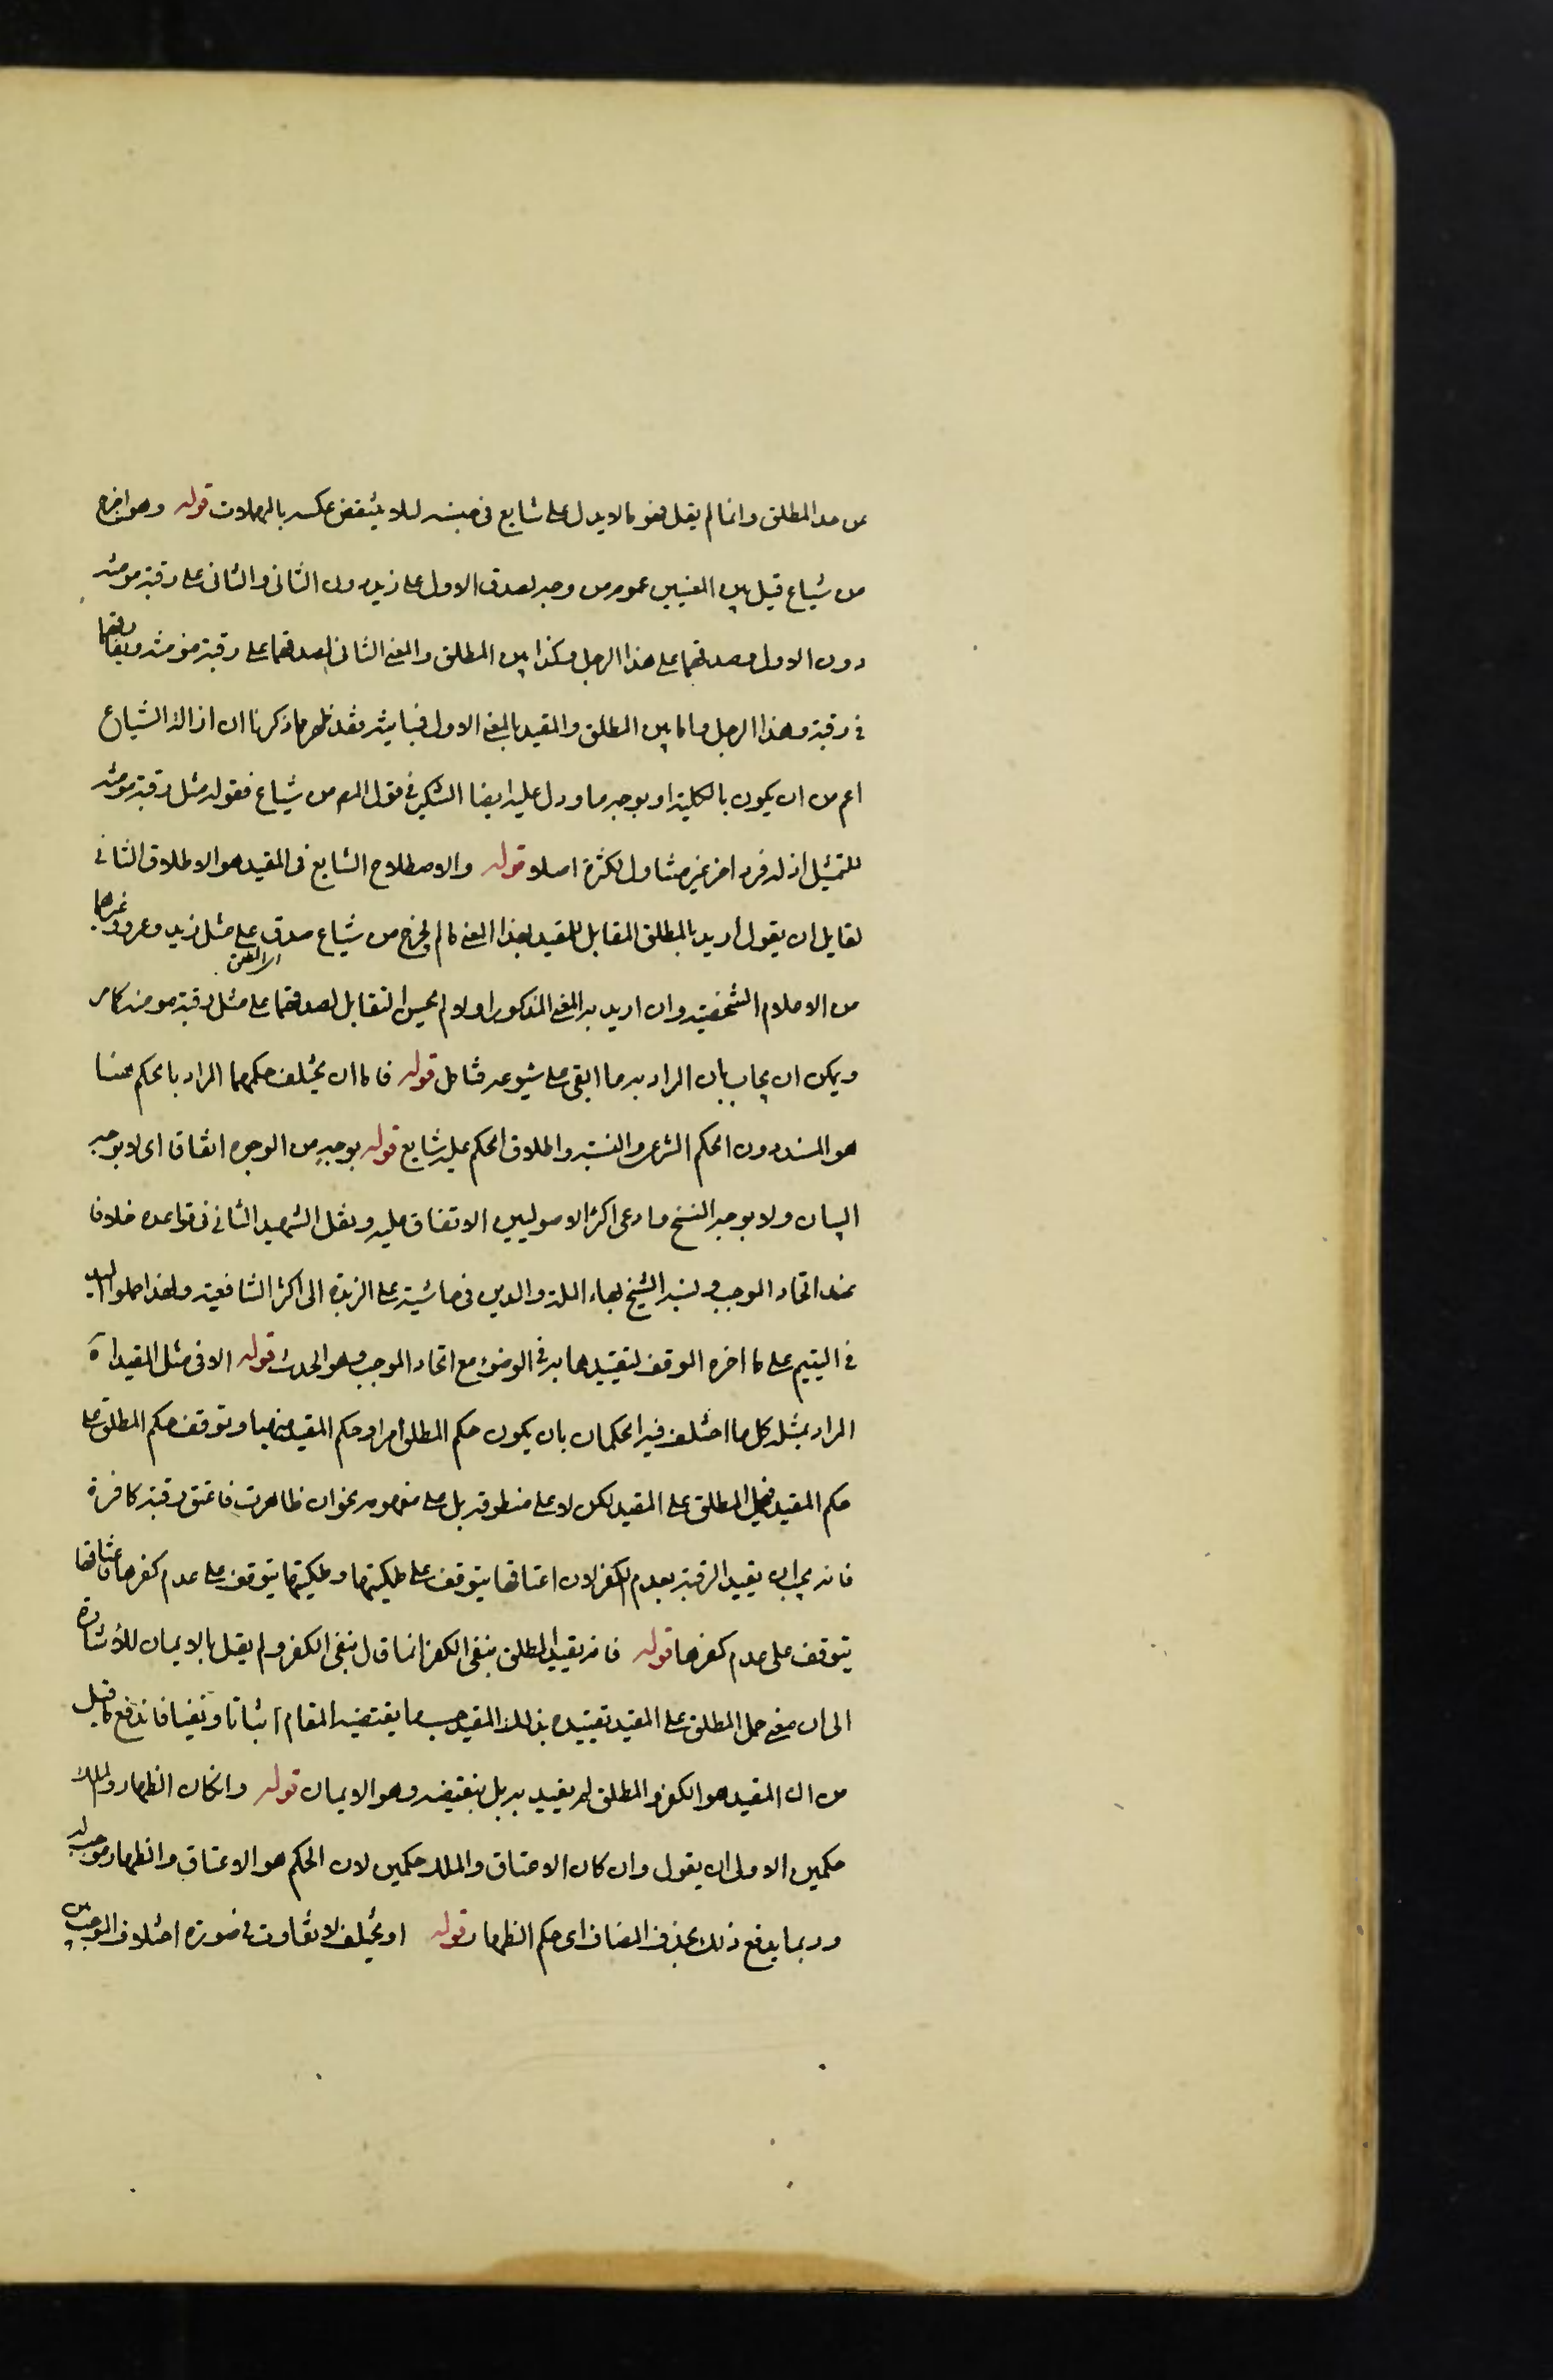 عن حد المطلق وانما لم يقل فهو ما لا يدل على شايع فى جنسه لئلا ينتقض عكسه بالمهملات قوله وهو ما اخرج
من شياع قيل بين المعنيين عموم من وجه لصدق الاول على زيد دون الثانى والثانى على رقبة مؤمنة
دون الاول وصدقهما على هذا الرجل وكذا بين المطلق والمعنى الثانى لصدقهما على رقبة مؤمنة وتفارقهما
فى رقبة وهذا الرجل واما بين المطلق والمقيد بالمعنى الاول فتباين فقد ظهر مما ذكرنا ان ازالة الشياع
اعم من ان يكون بالكلية او بوجه ما ودل عليه ايضا التنكير فى قول المص من شياع فقوله مثل رقبة مؤمنة
للتمثيل اذ له فرد اخر غير متناول لكثرة اصلا قوله والاصطلاح الشايع فى المقيد هو الاطلاق الثانى
لقايل ان يقول ان اريد بالمطلق المقابل للمقيد بهذا المعنى ما لم يخرج من شياع صدق على مثل زيد وعمرو وغيرهما
من الاعلام الشخصية وان اريد به المعنى المذكور اولا لم يحسن التقابل لصدقهما على مثل رقبة مؤمنة كما مر
ويمكن ان يجاب بان المراد به ما ابقى على شيوعه فتامل قوله فاما ان يختلف حكمهما المراد بالحكم ههنا
هو المسند دون الحكم الشرعى والنسبة واطلاق الحكم عليه شايع قوله بوجه من الوجوه اتفاقا اى لا بوجه
البيان ولا بوجه النسخ وادعى اكثر الاصوليين الاتفاق عليه ونقل الشهيد الثانى فى قواعده خلافا
عند اتحاد الموجب ونسبه الشيخ بهاء الملة والدين فى حاشيته على الزبدة الى اكثر الشافعية ولهذا حملوا اليد
فى التيمم على ما اخره المرفق لتقييدها به فى الوضوء مع اتحاد الموجب وهو الحدث قوله الا فى مثل المقيد اه
المراد بمثله كل ما اختلف فيه الحكمان بان يكون حكم المطلق امرا وحكم المقيد نهيا وتوقف حكم المطلق على
حكم المقيد فيحمل المطلق على المقيد لكن لا على منطوقه بل على مفهومه نحو ان ظاهرت فاعتق رقبة كافرة
فانه يجب ان يقيد الرقبة بعدم الكفر لان اعتاقها يتوقف على ملكيتها وملكيتها يتوقف على عدم كفرها فاعتاقها
يتوقف على عدم كفرها قوله فانه يقيد المطلق بنفى الكفر انما قال بنفى الكفر ولم يقل بالايمان للاشارة
الى ان معنى حمل المطلق على المقيد تقييده بذلك المقيد حسب ما يقتضيه المقام اثباتا ونفيا فاندفع ما قيل
من ان المقيد هو الكفر والمطلق لم يقيد به بل بنقيضه وهو الايمان قوله وان كان الظهار والملك
حكمين الاولى ان يقول وان كان الاعتاق والملك حكمين لان الحكم هو الاعتاق والظهار موجب له
وربما يدفع ذلك بحذف المضاف اى حكم الظهار قوله او يختلف لا تفاوت فى صورة اختلاف الموجب بين